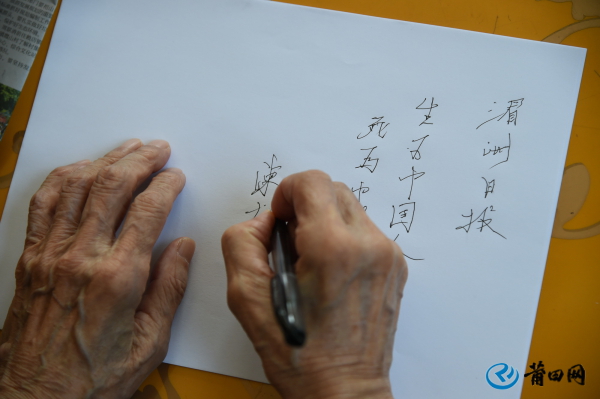 湄洲日报
生为中国人
死为中
莆田网